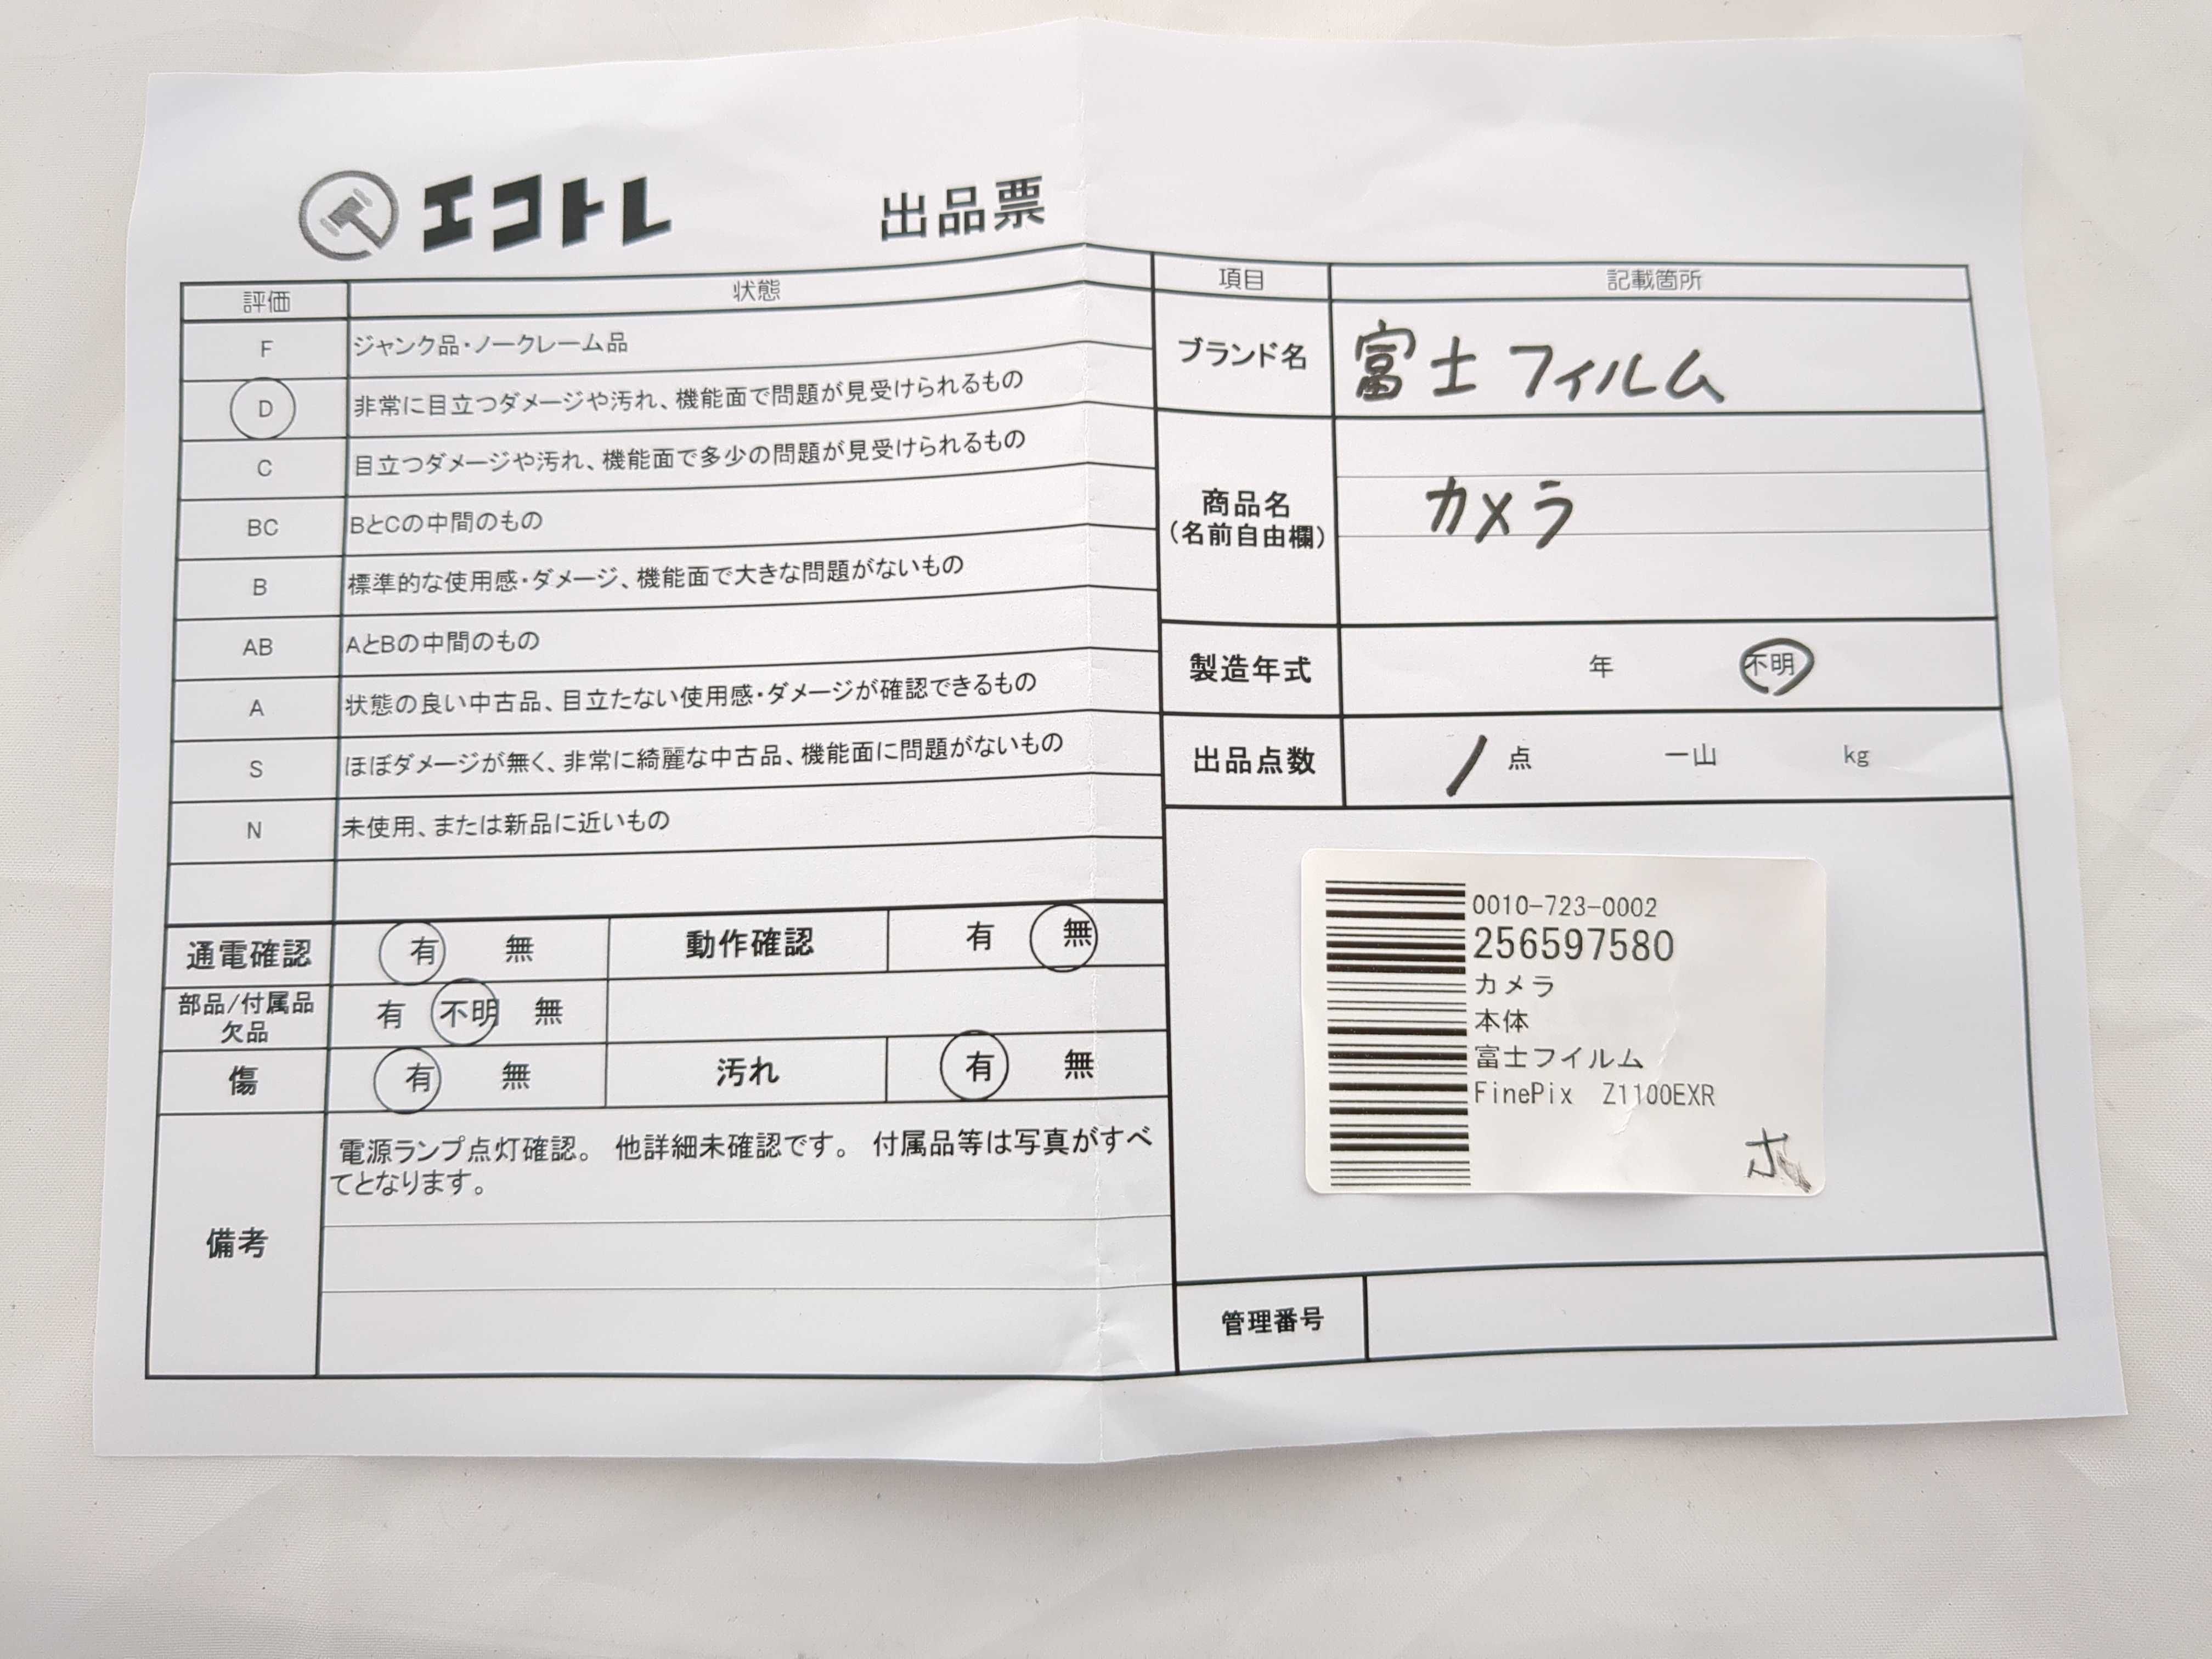 エコトレ 出品票
評価 状態
F ジャンク品・ノークレーム品
D 非常に目立つダメージや汚れ、機能面で問題が見受けられるもの
C 目立つダメージや汚れ、機能面で多少の問題が見受けられるもの
BC BとCの中間のもの
B 標準的な使用感・ダメージ、機能面で大きな問題がないもの
AB AとBの中間のもの
A 状態の良い中古品、目立たない使用感・ダメージが確認できるもの
S ほぼダメージが無く、非常に綺麗な中古品、機能面に問題がないもの
N 未使用、または新品に近いもの
通電確認 有 無 動作確認 有 無
部品/付属品
欠品
有 不明 無
傷 有 無 汚れ 有 無
備考
電源ランプ点灯確認。 他詳細未確認です。 付属品等は写真がすべ
てとなります。
項目 記載箇所
ブランド名 富士フィルム
商品名
(名前自由欄)
カメラ
製造年式 年 不明
出品点数 1 点 一山 kg
0010-723-0002
256597580
カメラ
本体
富士フイルム
FinePix Z1100EXR
管理番号